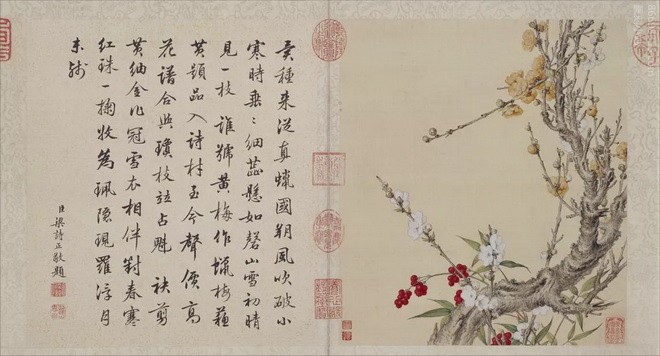 種来從真蠟國朔風吹破小
寒時垂〻細蕊懸如磬山雪初晴
見一枝 誰號黃梅作蠟梅蘓
黃題品入詩材至今聲價高
花譜合與瓊枝竝占魁 袂剪
黃紬金作冠雪衣相伴對春寒
紅珠一掬收為珮隱現羅浮月
未殘
臣梁詩正敬題